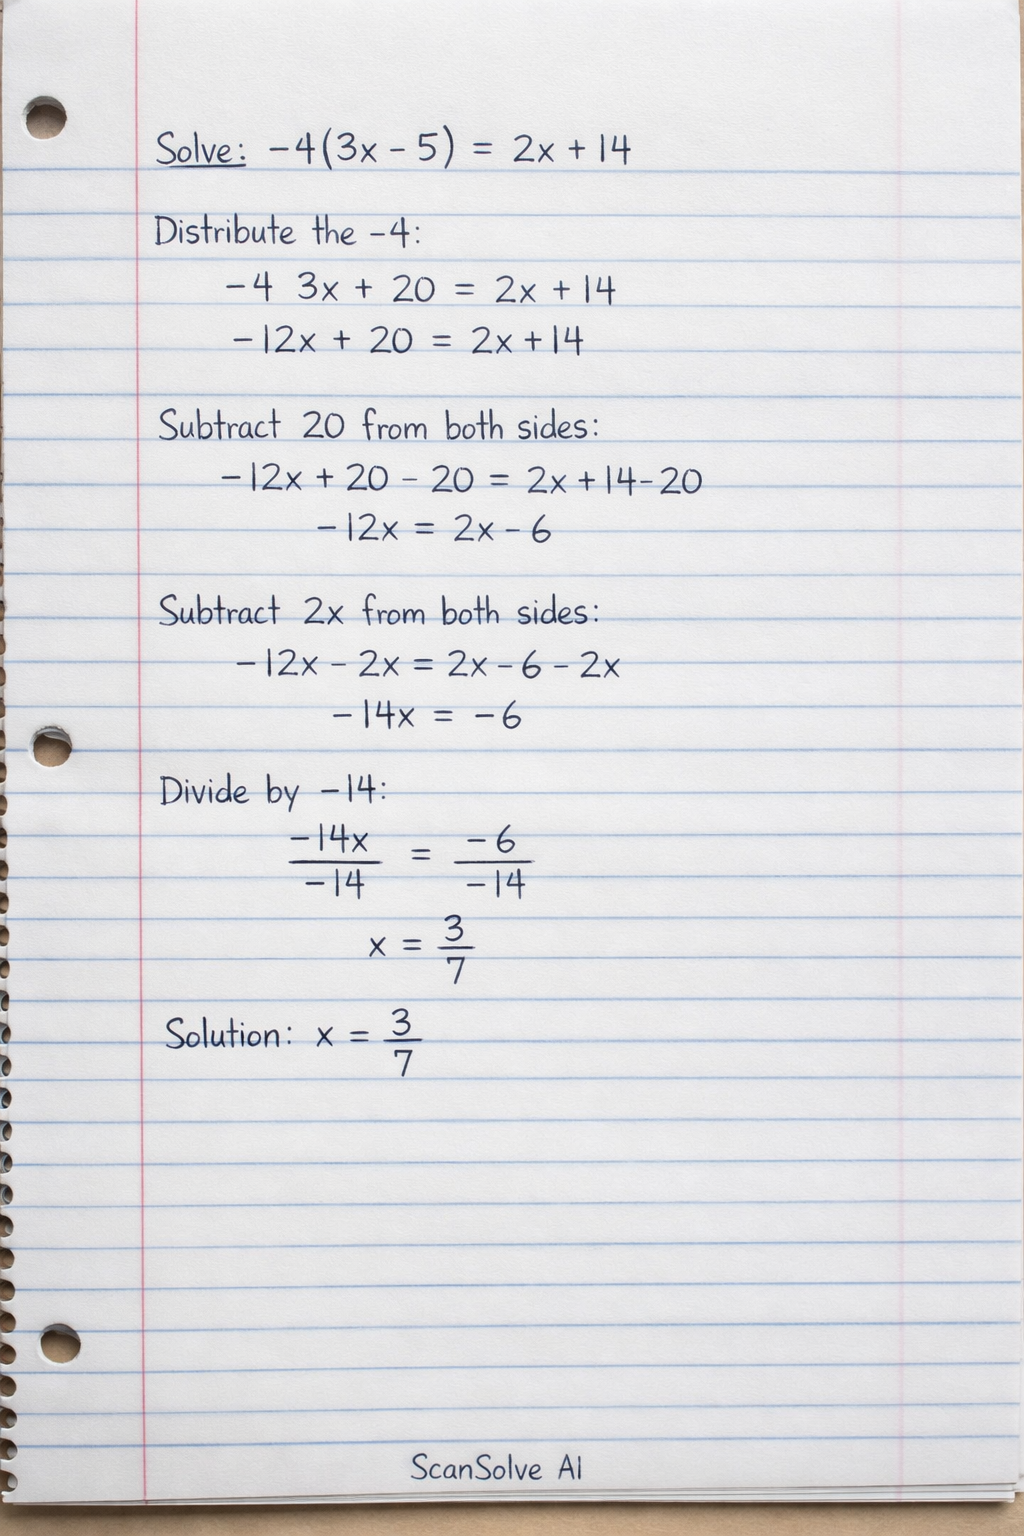 Solve: −4(3x − 5) = 2x + 14
Distribute the −4:
−4 3x + 20 = 2x + 14
−12x + 20 = 2x + 14
Subtract 20 from both sides:
−12x + 20 − 20 = 2x + 14 − 20
−12x = 2x − 6
Subtract 2x from both sides:
−12x − 2x = 2x − 6 − 2x
−14x = −6
Divide by −14:
−14x/−14 = −6/−14
x = 3/7
Solution: x = 3/7
ScanSolve AI